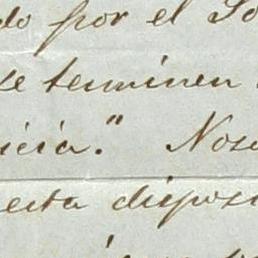 do por el So
se terminen
icia." Noso
esta dispos